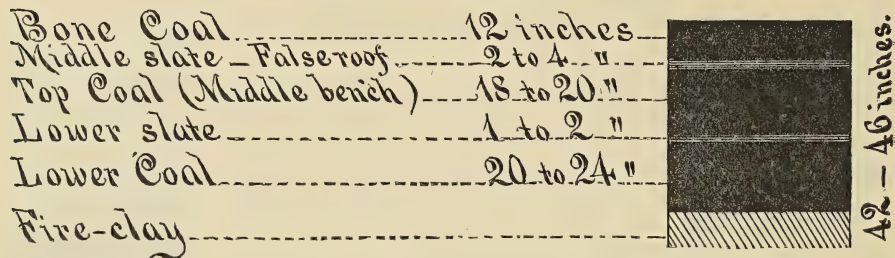 Bone Coal 12 inches
Middle slate – False roof 2 to 4 "
Top Coal (Middle bench) 18 to 20 "
Lower slate 1 to 2 "
Lower Coal 20 to 24 "
Fire-clay
42 – 46 inches.